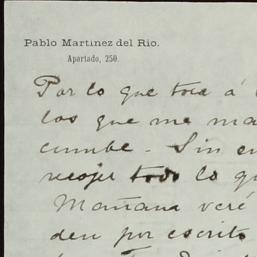 Pablo Martinez del Rio.
Apartado, 250.
Por lo que toca á
los que me ma
cumbe. Sin em
recojer todo lo qu
Mañana veré
den por escrito